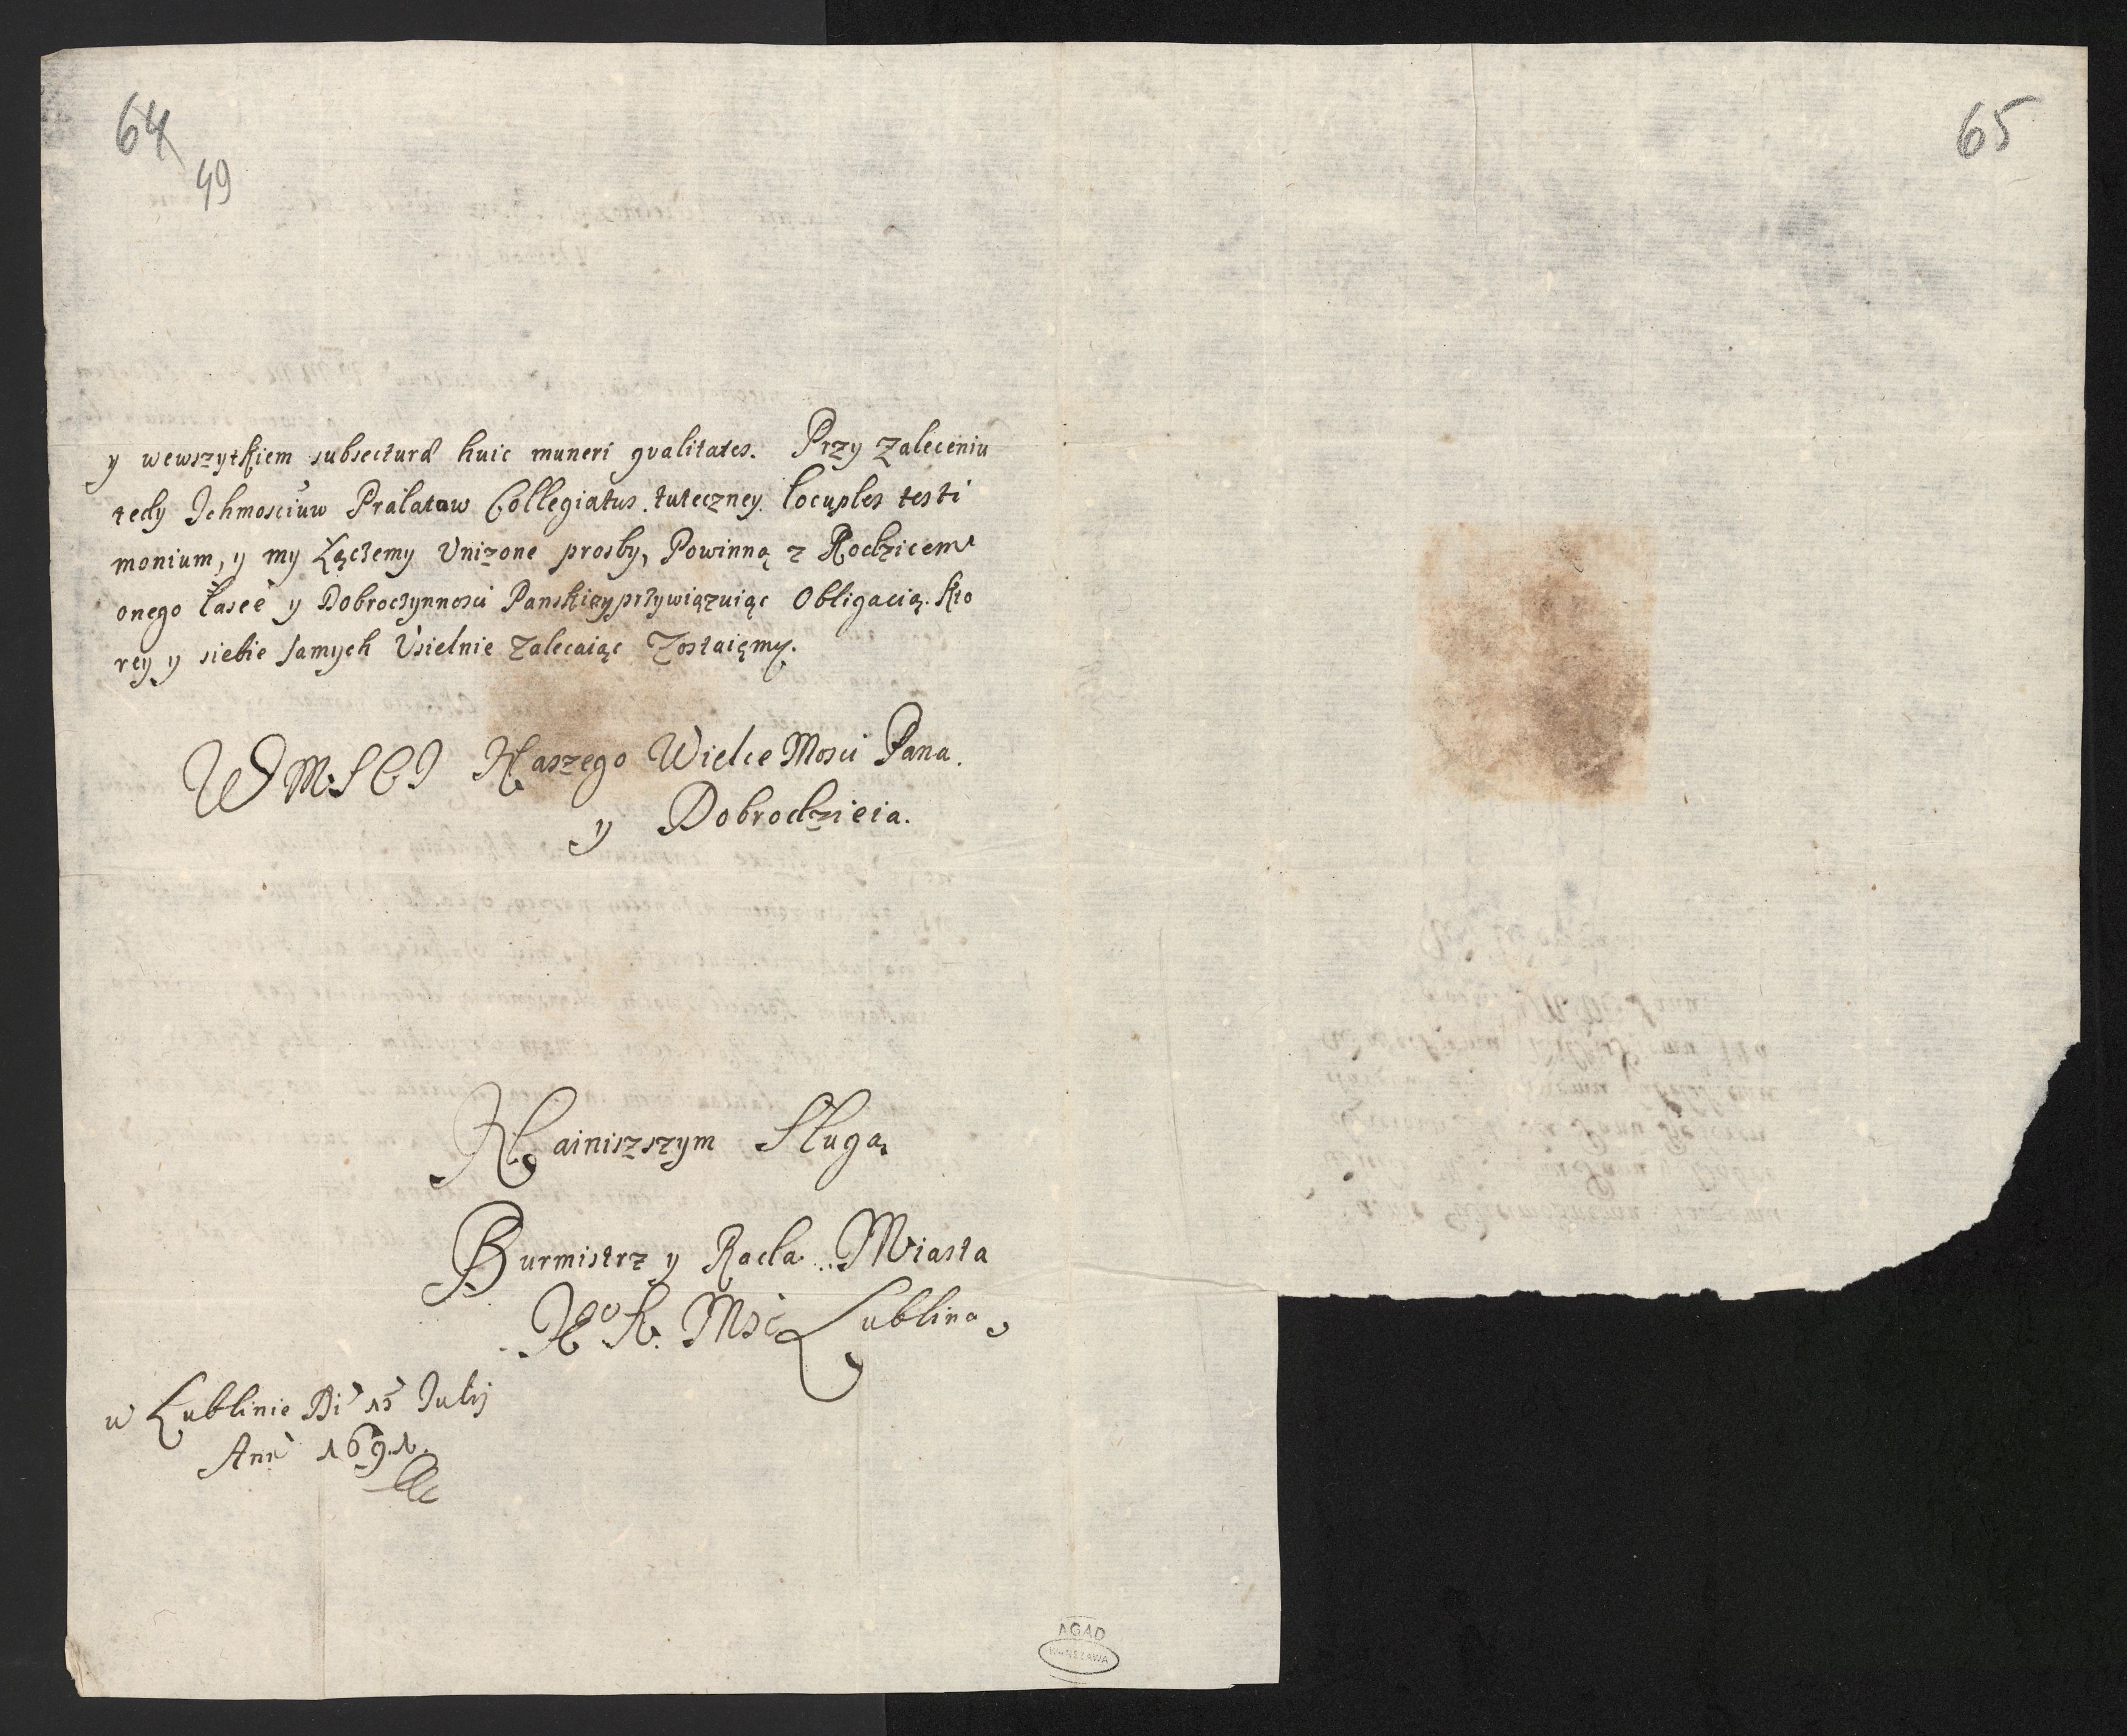 64
49
65
y wewszytkiem subsectura huic muneri qualitates. Przy zaleceniu
tedy Ichmosciuw Prałatow Collegiatus tuteczney locuples testi
monium, y my Łączemy Unizone prosby, Powinną z Rodzicem
onego łasce y Dobroczynnosci Panskiey przywiązuiąc Obligacią. Kto
rey y siebie samych Usielnie zalecaiąc Zostaięmy.
WMSCI Naszego Wielce Mosci Pana.
y Dobrodzieia.
Nainiszszym Sługą
Burmistrz y Rada Miasta
K. Msc Lublina
w Lublinie Di 15 July
Ann 1691.
AGAD
WARSZAWA